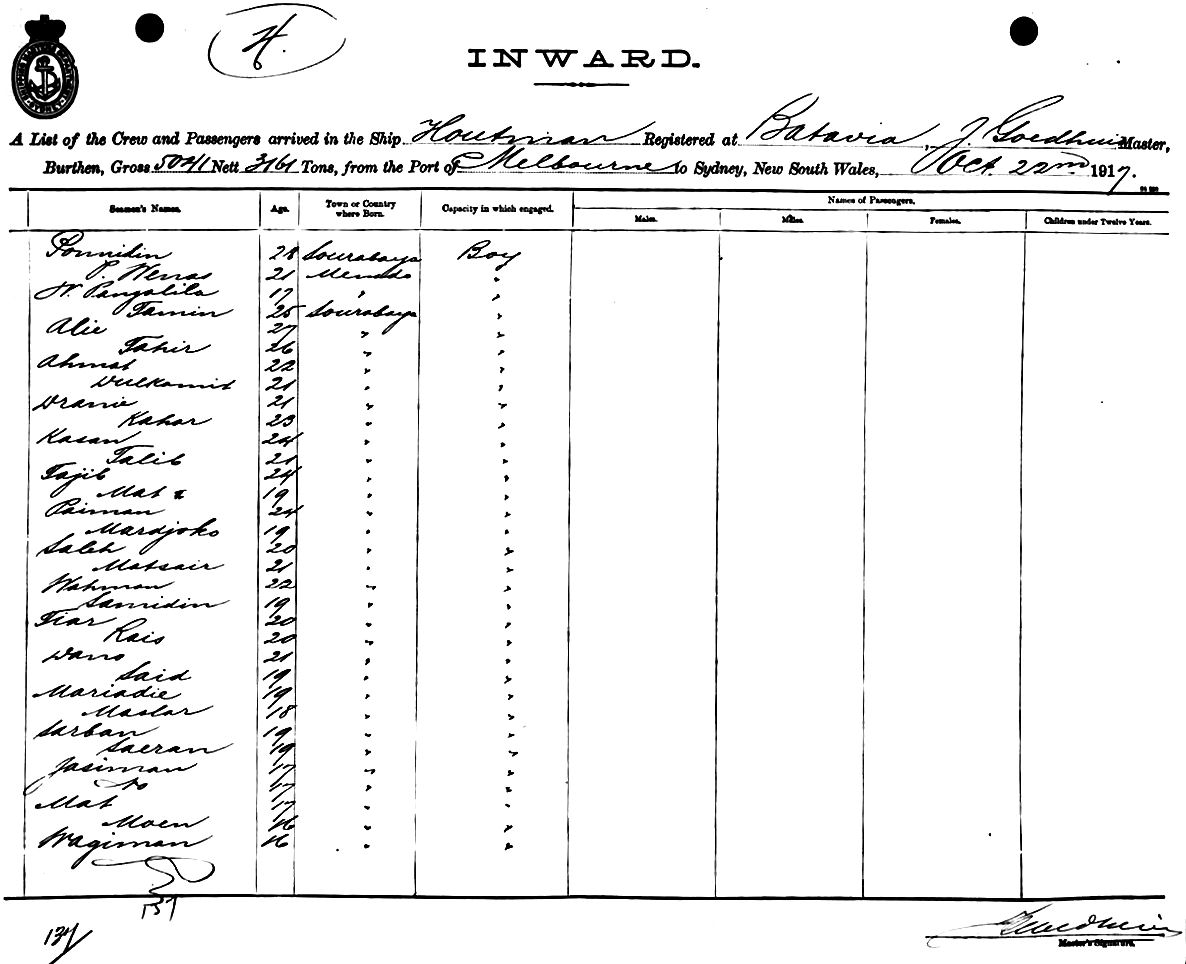 H.
INWARD.
A List of the Crew and Passengers arrived in the Ship Houtman Registered at Batavia, J. Goedhuis Master,
Burthen, Gross 5041 Nett 3161 Tons, from the Port of Melbourne to Sydney, New South Wales, Oct. 22nd 1917.
Seamen's Names. Age. Town or Country where Born. Capacity in which engaged. Names of Passengers.
Males. Males. Females. Children under Twelve Years.
Ponnidin 28 Sourabaya Boy
P. Wenas 21 Menado "
N. Pangalila 17 " "
Tamin 25 Sourabaya "
Alie 27 " "
Tahir 26 " "
Ahmat 22 " "
Dulkamit 21 " "
Dranie 21 " "
Kahar 23 " "
Kasan 24 " "
Talib 21 " "
Tajib 24 " "
Mat 19 " "
Paiman 24 " "
Mardjoko 19 " "
Saleh 20 " "
Matsair 21 " "
Wahman 22 " "
Samidin 19 " "
Tiar 20 " "
Rais 20 " "
Dano 21 " "
Said 19 " "
Mariadie 19 " "
Maslar 18 " "
Sarban 19 " "
Saeran 19 " "
Jasiman 17 " "
17 " "
Mat 17 " "
Moen 16 " "
Wagiman 16 " "
137
137
J Goedhuis
Master's Signature.